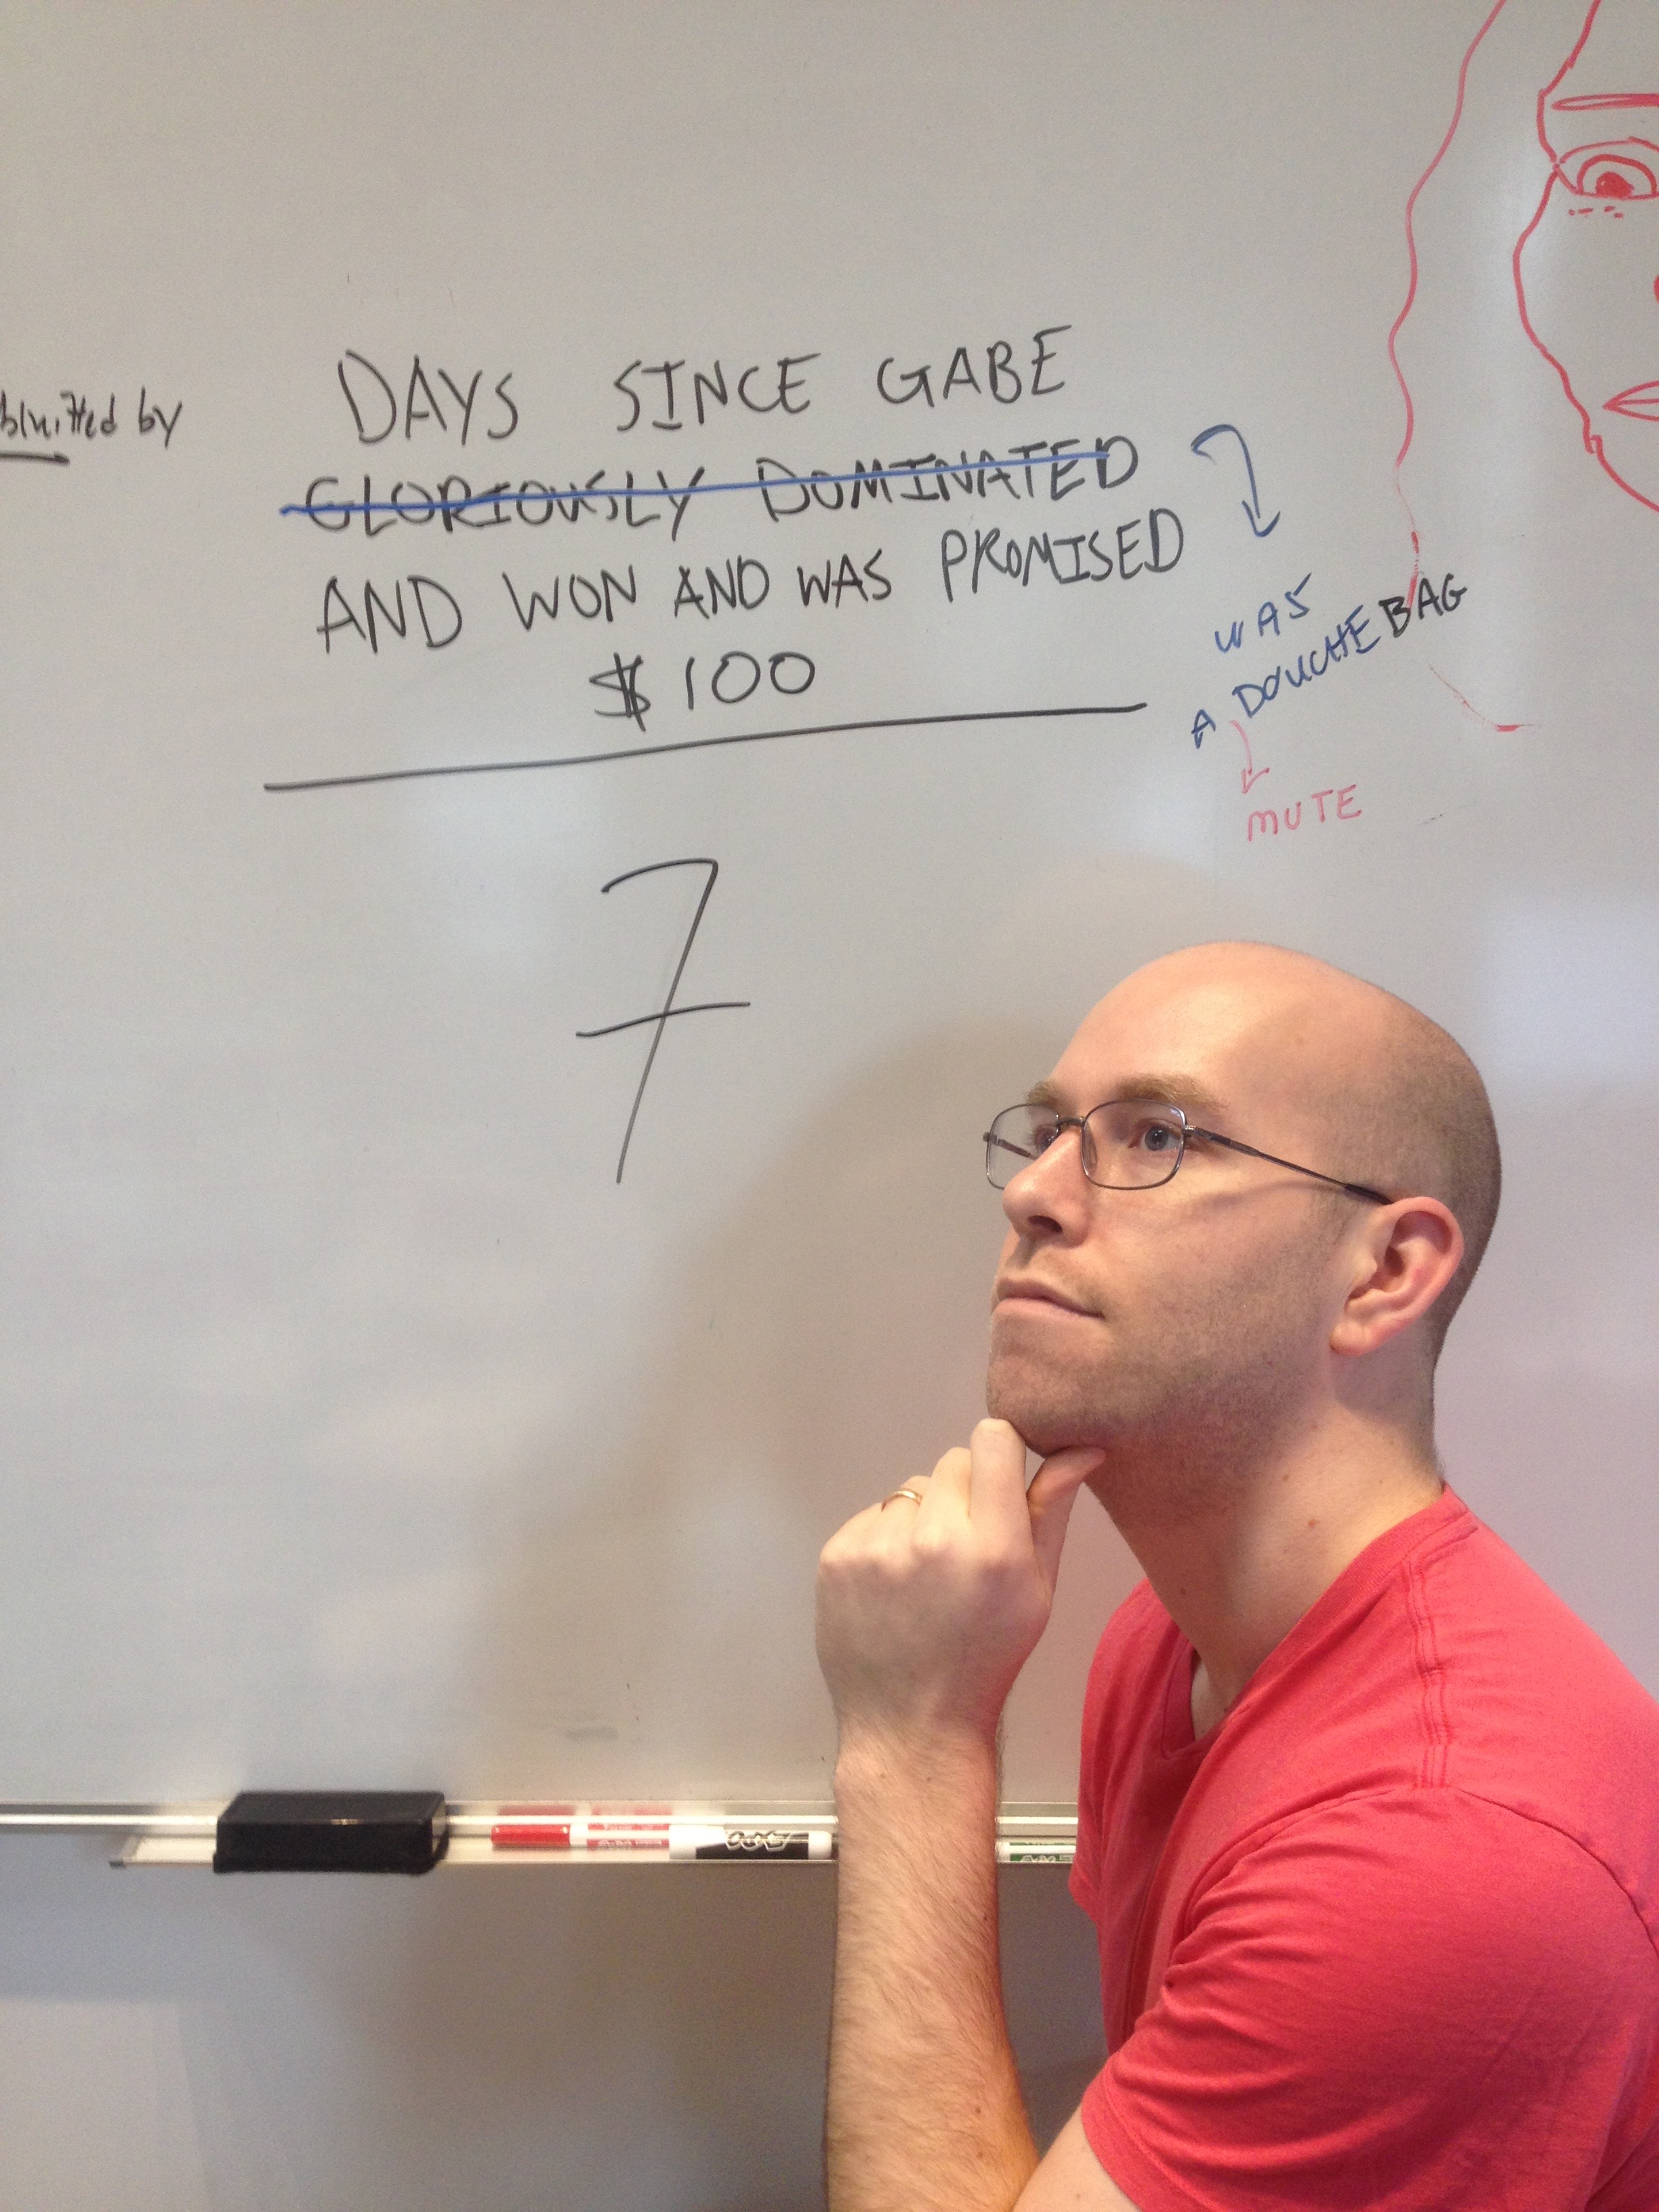 DAYS SINCE GABE
GLORIOUSLY DOMINATED
AND WON AND WAS PROMISED
$100
7
by
WAS
A DOUCHEBAG
MUTE
EXPO